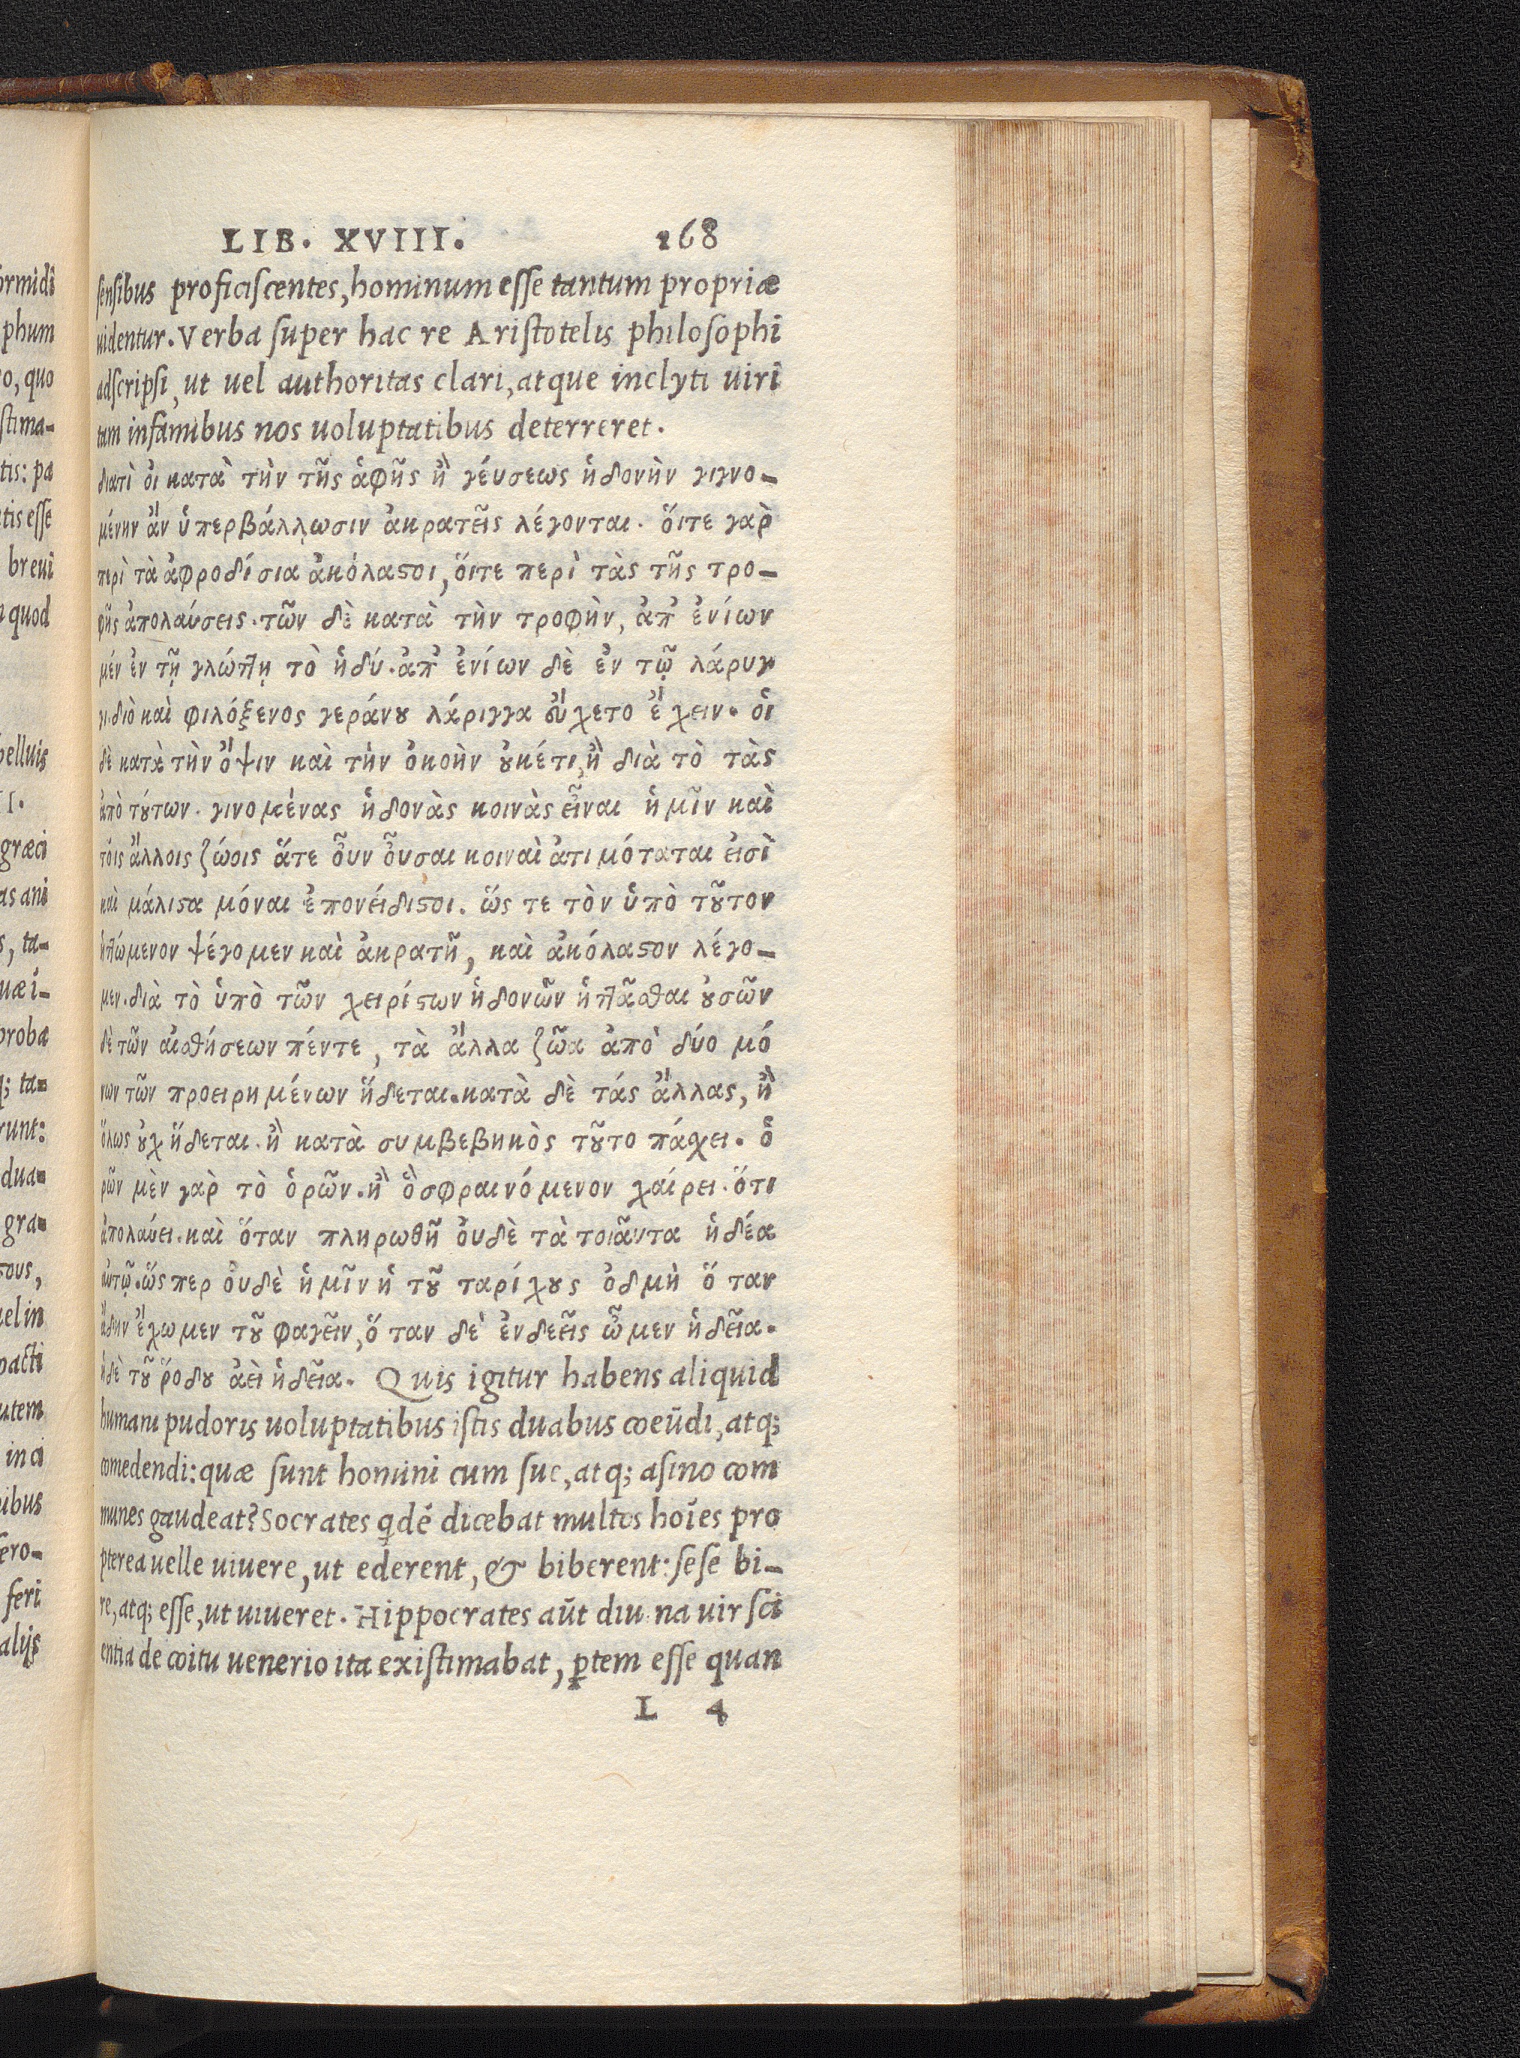 LIB. XVIII. 168
sensibus proficiscentes, hominum esse tantum propriæ
uidentur. Verba super hac re Aristotelis philosophi
adscripsi, ut uel authoritas clari, atque inclyti uiri
tam infamibus nos uoluptatibus deterreret.
διατὶ ὁι κατὰ τὴν τῆς ἁφῆς ἢ γέυσεως ἡδονὴν γιγνο-
μένην ἂν ὑπερβάλλωσιν ἀκρατεῖς λέγονται. ὅιτε γὰρ
περὶ τὰ ἀφροδίσια ἀκόλαστοι, ὅιτε περὶ τὰς τῆς τρο-
φῆς ἀπολαύσεις. τῶν δὲ κατὰ τὴν τροφὴν, ἀπ' ἐνίων
μέν ἐν τῇ γλώττῃ τὸ ἡδύ. ἀπ' ἐνίων δὲ ἐν τῷ λάρυγ
γι. διὸ καὶ φιλόξενος γεράνου λάριγγα ἔυχετο ἔχειν. ὁι
δὲ κατὰ τὴν ὄψιν καὶ τὴν ἀκοὴν ὀυκέτι, ἢ διὰ τὸ τὰς
ἀπὸ τούτων. γινομένας ἡδονὰς κοινὰς εἶναι ἡμῖν καὶ
τοῖς ἄλλοις ζώοις ἅτε ὂυν ὂυσαι κοιναὶ ἀτιμόταται εἰσὶ
καὶ μάλιστα μόναι ἐπονείδιστοι. ὥς τε τὸν ὑπὸ τοῦτον
ἡττώμενον ψέγομεν καὶ ἀκρατῆ, καὶ ἀκόλαστον λέγο-
μεν. διὰ τὸ ὑπὸ τῶν χειρίστων ἡδονῶν ἡττᾶσθαι ὀυσῶν
δὲ τῶν αἰσθήσεων πέντε, τὰ ἄλλα ζῶα ἀπὸ δύο μό
νων τῶν προειρημένων ἥδεται. κατὰ δὲ τάς ἄλλας, ἢ
ὅλως ὀυχ ἥδεται. ἢ κατὰ συμβεβηκὸς τοῦτο πάσχει. ὁ
ρῶν μὲν γὰρ τὸ ὁρῶν. ἢ ὀσφραινόμενον χαίρει. ὅτι
ἀπολαύει. καὶ ὅταν πληρωθῇ ὀυδὲ τὰ τοιαῦτα ἡδέα
ἀυτῷ. ὥς περ ὀυδὲ ἡμῖν ἡ τοῦ ταρίχους ὀδμὴ ὅταν
ἅδην ἔχωμεν τοῦ φαγεῖν, ὅταν δὲ ἐνδεεῖς ὦμεν ἡδεῖα.
ἡ δὲ τοῦ ῥόδου ἀεὶ ἡδεῖα. Quis igitur habens aliquid
humani pudoris uoluptatibus istis duabus coeūdi, atq;
comedendi: quæ sunt homini cum sue, atq; asino com
munes gaudeat? Socrates qdē dicebat multos hoīes pro
pterea uelle uiuere, ut ederent, & biberent: sese bi-
re, atq; esse, ut uiueret. Hippocrates aūt diuina uir sci
entia de coitu uenerio ita existimabat, ptem esse quan
L 4
ormidi
phum
o, quo
stima-
tis: pa
tis esse
breui
quod
belluis
II.
græci
as ani
s, ta-
uæ i-
probæ
q; ta-
runt:
dua-
gra-
uel in
pacti
utem
in ci
ibus
fero-
feri
alijs